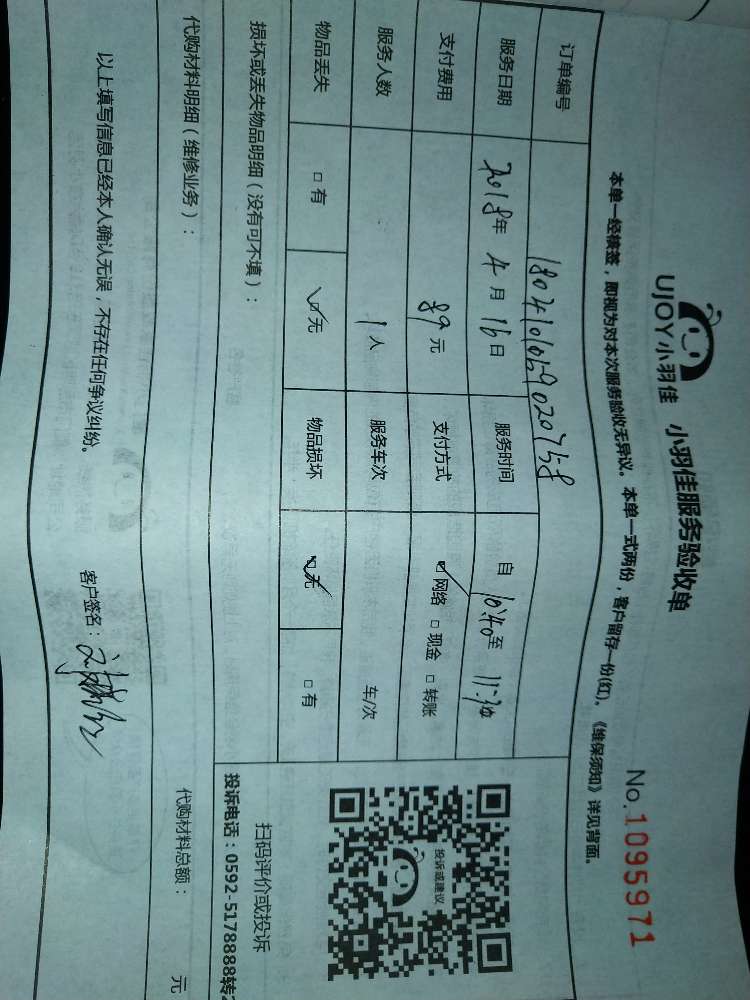 UJOY小羽佳 小羽佳服务验收单
No.1095971
本单一经核签，即视为对本次服务验收无异议。本单一式两份，客户留存一份(红)。《维保须知》详见背面。
订单编号
服务日期 2018年 4月 16日 服务时间 自 10:40至 11:30
支付费用 89元 支付方式 ☑网络 □现金 □转账
服务人数 1人 服务车次 车/次
物品丢失 □有 ☑无 物品损坏 ☑无 □有
投诉或建议
扫码评价或投诉
投诉电话：0592-5178888转2
损坏或丢失物品明细（没有可不填）：
代购材料明细（维修业务）： 代购材料总额： 元
以上填写信息已经本人确认无误，不存在任何争议纠纷。 客户签名：